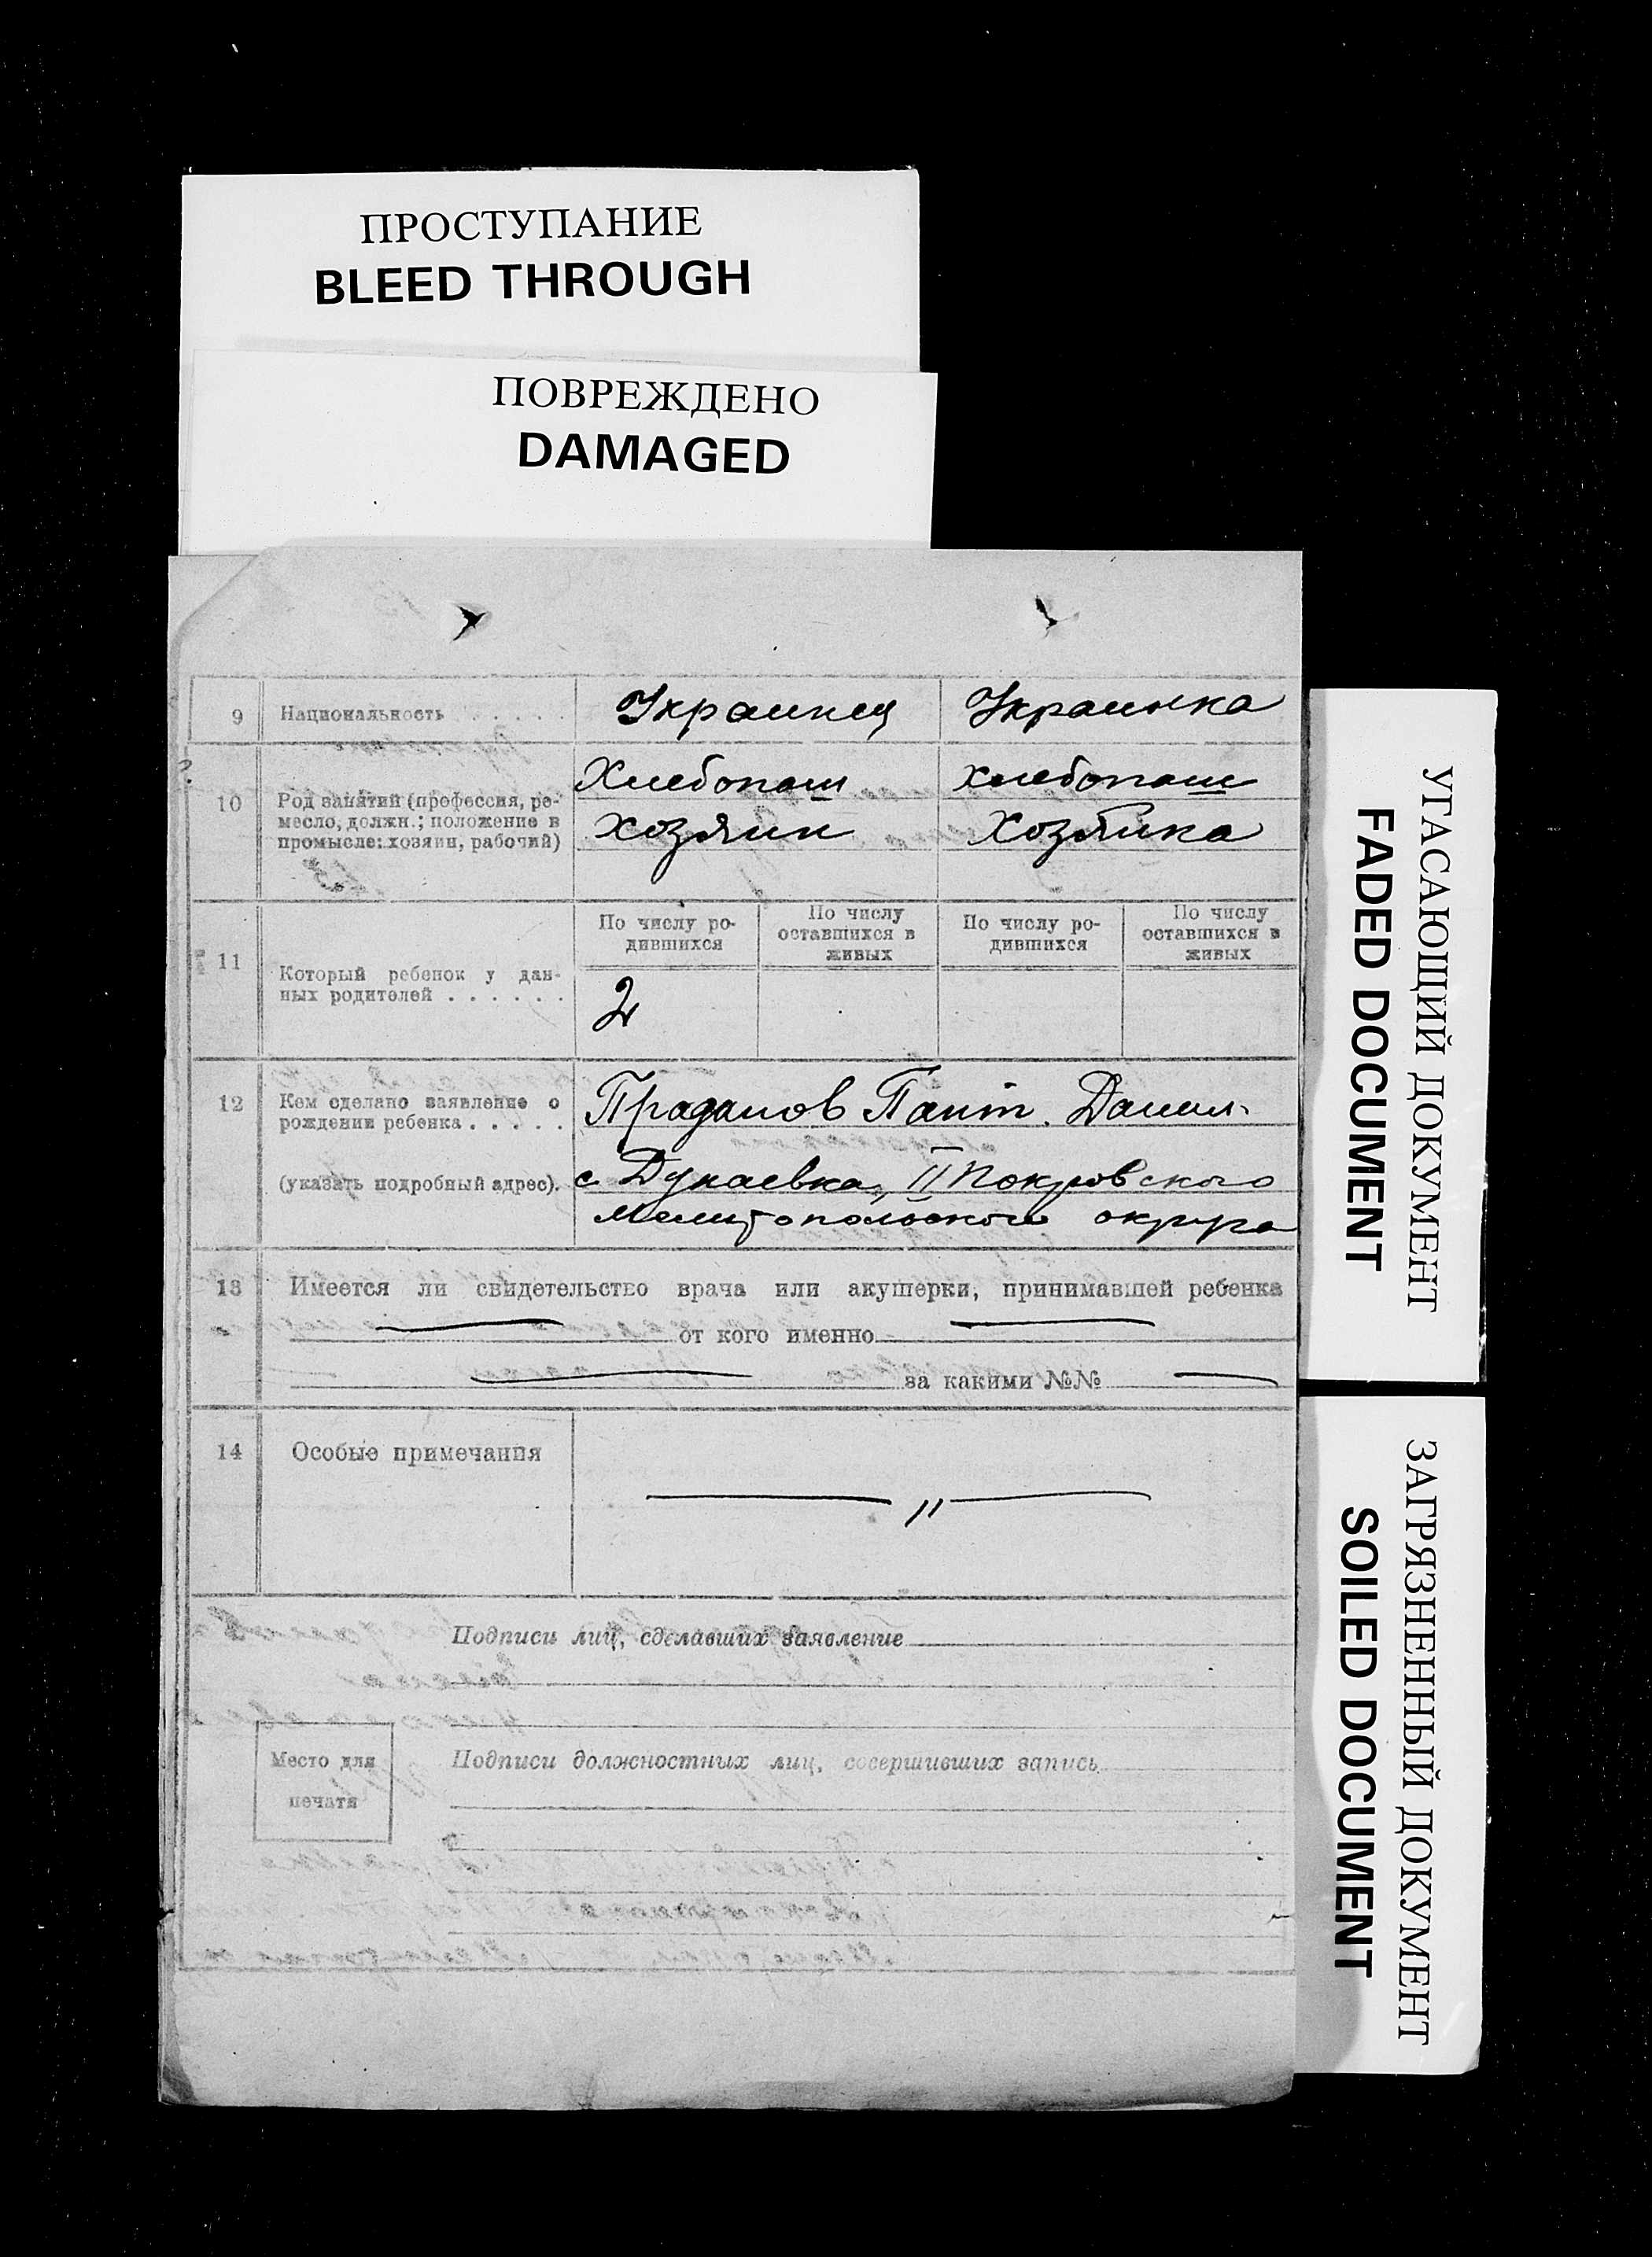 ПРОСТУПАНИЕ
BLEED THROUGH
ПОВРЕЖДЕНО
DAMAGED
9 Национальность . . . . . Украинец Украинка
10 Род занятий (профессия, ре-
месло, должн.; положение в
промысле: хозяин, рабочий)
Хлебопаш хлебопаш
хозяин хозяйка
11 Который ребенок у дан-
ных родителей . . . . . .
По числу ро-
дившихся
По числу
оставшихся в
живых
По числу ро-
дившихся
По числу
оставшихся в
живых
2
12 Кем сделано заявление о
рождении ребенка . . . . .
(указать подробный адрес).
Праданов Пант. Данил.
с Дунаевка, II Покровского
Мелитопольского округа
13 Имеется ли свидетельство врача или акушерки, принимавшей ребенка
от кого именно
за какими №№
14 Особые примечания
— " —
Подписи лиц, сделавших заявление
Место для
печати
Подписи должностных лиц, совершивших запись
УГАСАЮЩИЙ ДОКУМЕНТ
FADED DOCUMENT
ЗАГРЯЗНЕННЫЙ ДОКУМЕНТ
SOILED DOCUMENT